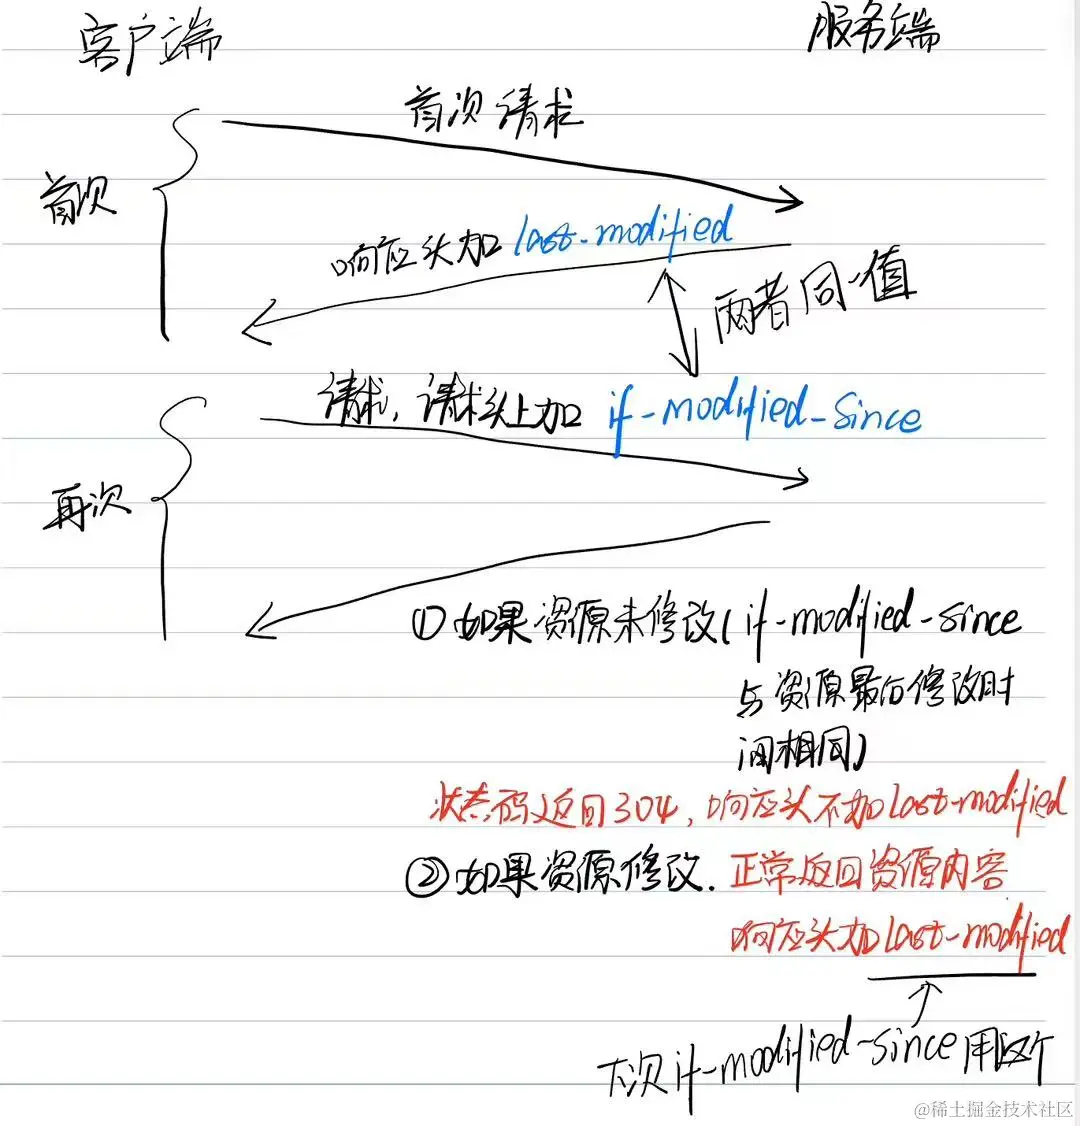 客户端
服务端
首次请求
首次
响应头加 last-modified
两者同一值
请求，请求头上加 if-modified-since
再次
①如果资源未修改(if-modified-since
与资源最后修改时
间相同)
状态码返回304，响应头不加last-modified
②如果资源修改.正常返回资源内容
响应头加last-modified
下次if-modified-since用这个
@稀土掘金技术社区